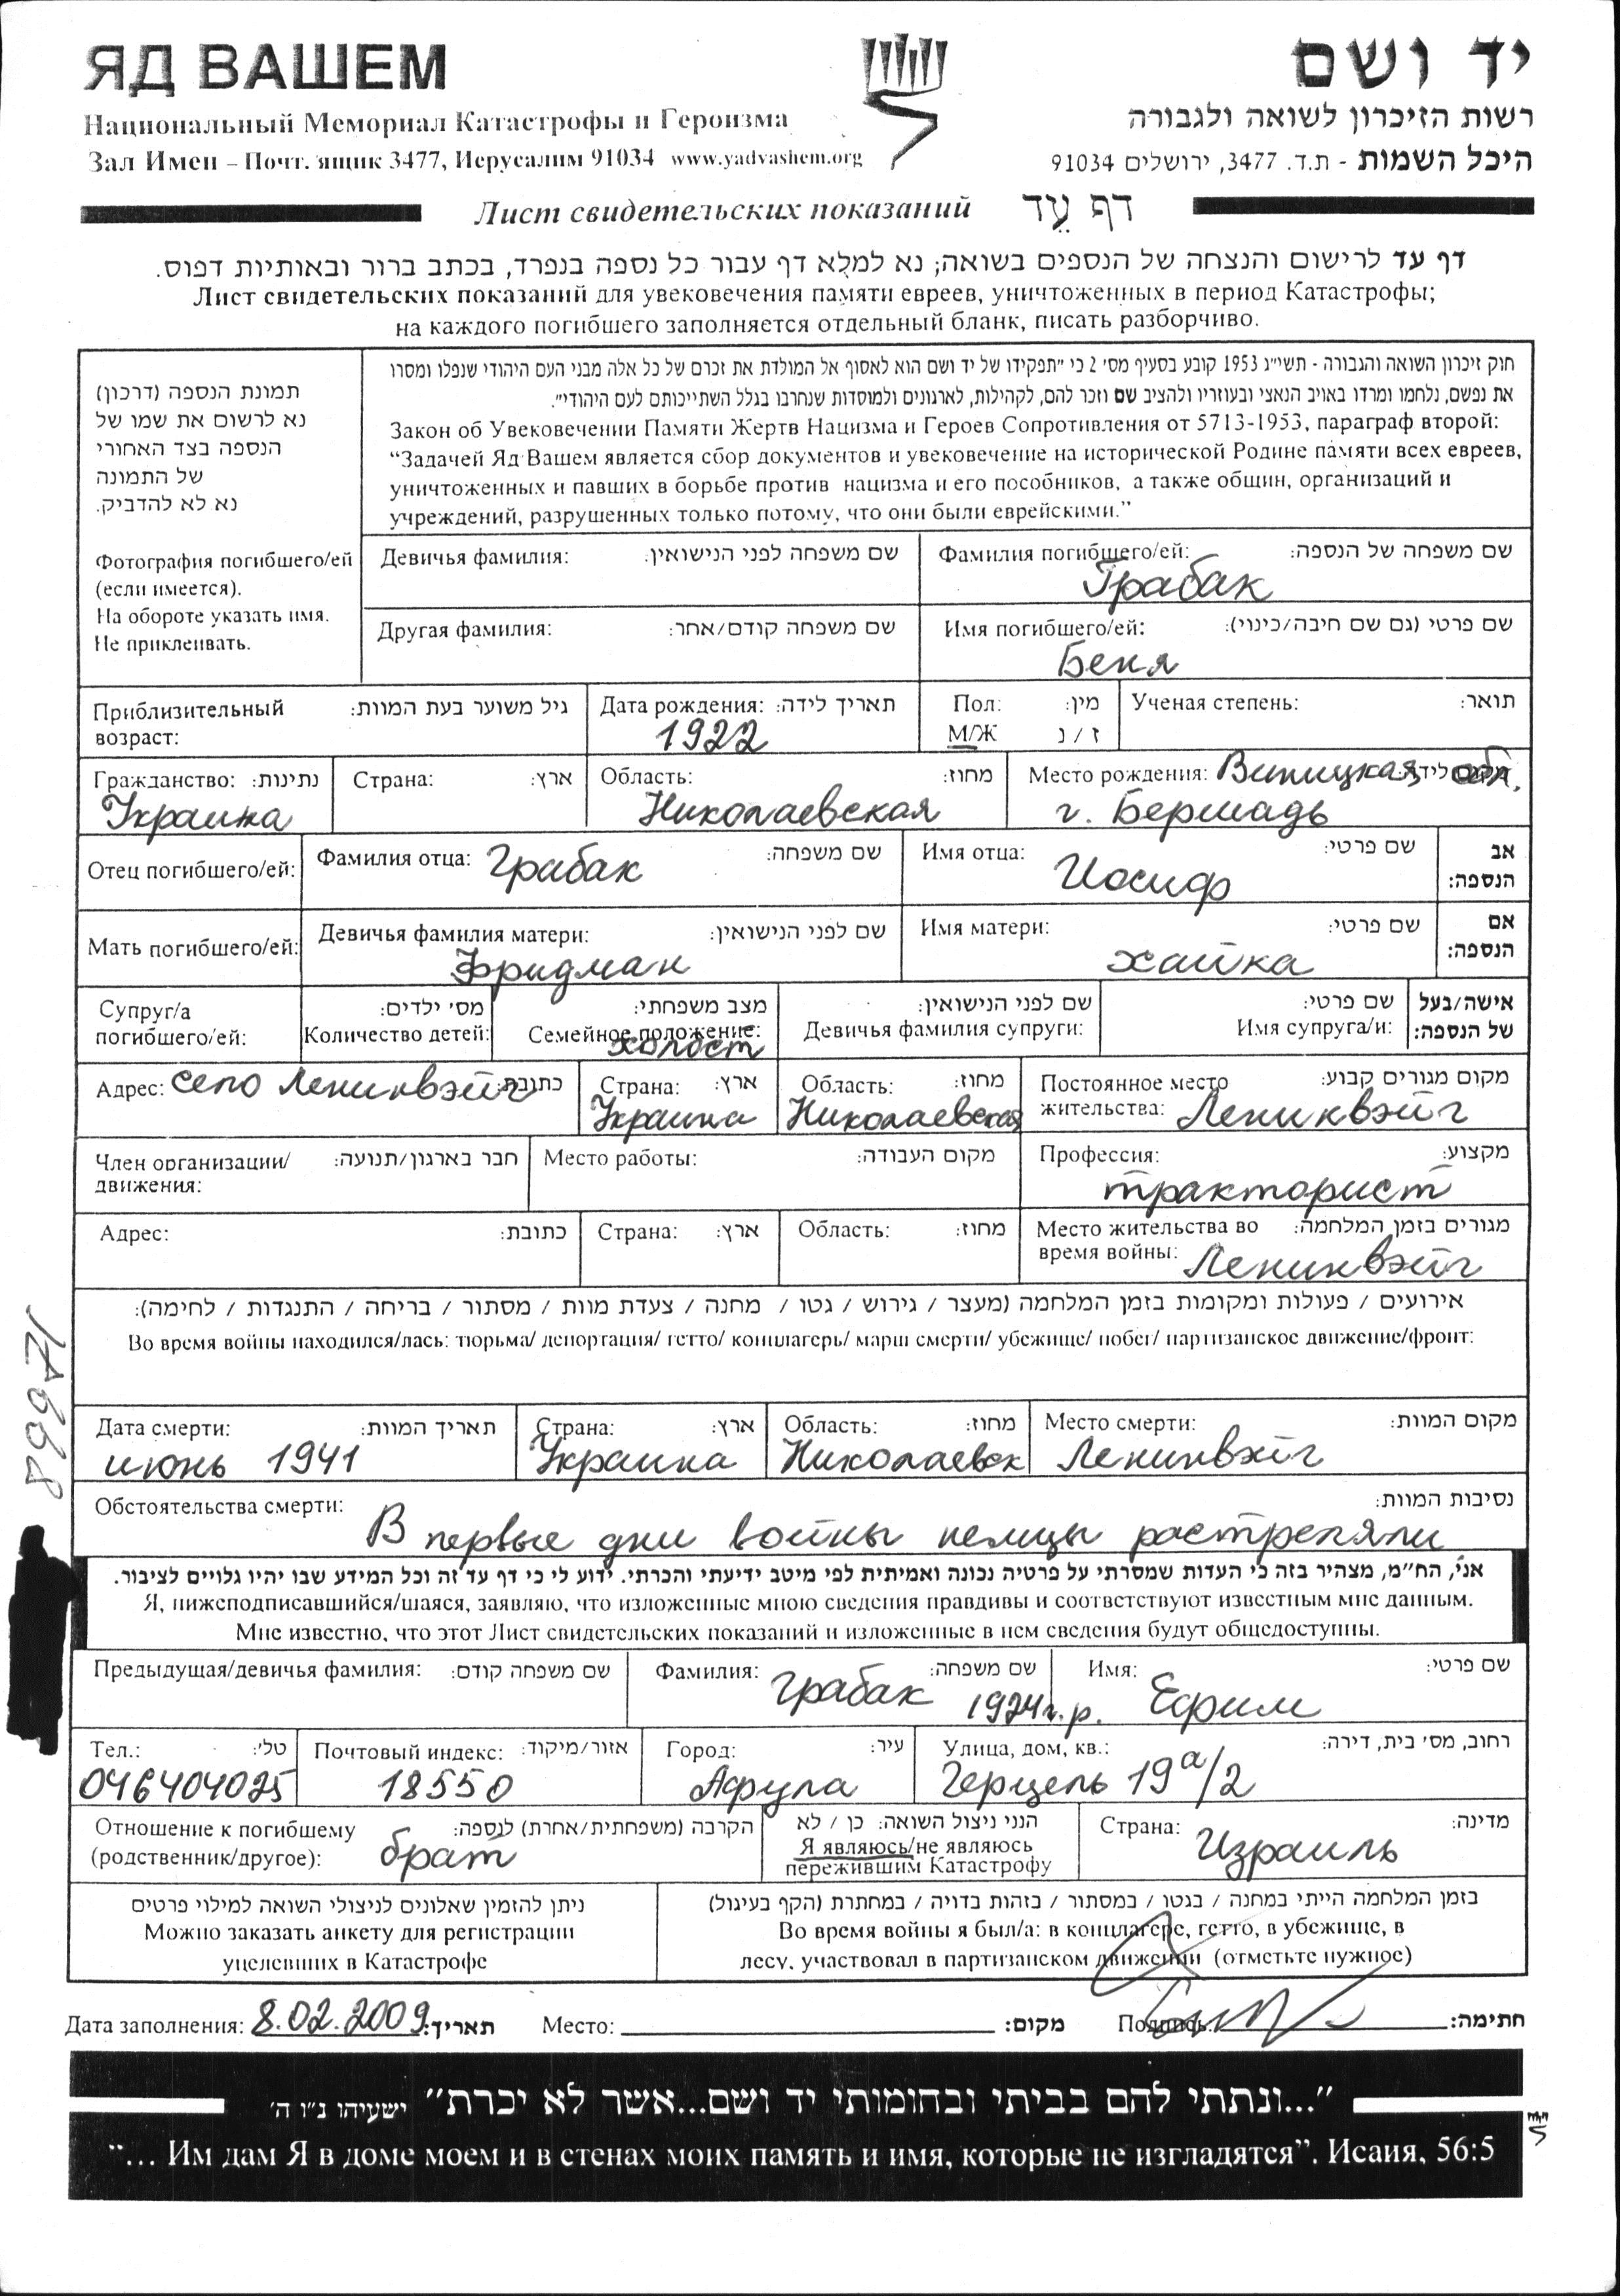 ЯД ВАШЕМ
יד ושם
Национальный Мемориал Катастрофы и Героизма
רשות הזיכרון לשואה ולגבורה
Зал Имен – Почт. ящик 3477, Иерусалим 91034 www.yadvashem.org
היכל השמות - ת.ד. 3477, ירושלים 91034
Лист свидетельских показаний דף עֵד
דף עד לרישום והנצחה של הנספים בשואה; נא למלא דף עבור כל נספה בנפרד, בכתב ברור ובאותיות דפוס.
Лист свидетельских показаний для увековечения памяти евреев, уничтоженных в период Катастрофы;
на каждого погибшего заполняется отдельный бланк, писать разборчиво.
תמונת הנספה (דרכון)
נא לרשום את שמו של
הנספה בצד האחורי
של התמונה
נא לא להדביק.
Фотография погибшего/ей
(если имеется).
На обороте указать имя.
Не приклеивать.
חוק זיכרון השואה והגבורה - תשי״ג 1953 קובע בסעיף מס׳ 2 כי ״תפקידו של יד ושם הוא לאסוף אל המולדת את זכרם של כל אלה מבני העם היהודי שנפלו ומסרו
את נפשם, נלחמו ומרדו באויב הנאצי ובעוזריו ולהציב שם וזכר להם, לקהילות, לארגונים ולמוסדות שנחרבו בגלל השתייכותם לעם היהודי״.
Закон об Увековечении Памяти Жертв Нацизма и Героев Сопротивления от 5713-1953, параграф второй:
“Задачей Яд Вашем является сбор документов и увековечение на исторической Родине памяти всех евреев,
уничтоженных и павших в борьбе против нацизма и его пособников, а также общин, организаций и
учреждений, разрушенных только потому, что они были еврейскими.”
Девичья фамилия: שם משפחה לפני הנישואין:
Фамилия погибшего/ей: שם משפחה של הנספה:
Грабак
Другая фамилия: שם משפחה קודם/אחר:
Имя погибшего/ей: שם פרטי (גם שם חיבה/כינוי):
Беня
Приблизительный возраст: גיל משוער בעת המוות:
Дата рождения: תאריך לידה:
1922
Пол: מין:
М/Ж ז / נ
Ученая степень: תואר:
Гражданство: נתינות:
Украина
Страна: ארץ:
Область: מחוז:
Николаевская
Место рождения: Виницкая обл.
г. Бершадь
Отец погибшего/ей:
Фамилия отца: Грабак שם משפחה:
Имя отца: Иосиф שם פרטי:
אב הנספה:
Мать погибшего/ей:
Девичья фамилия матери: שם לפני הנישואין:
Фридман
Имя матери: שם פרטי:
Хайка
אם הנספה:
Супруг/а погибшего/ей:
מס׳ ילדים:
Количество детей:
מצב משפחתי:
Семейное положение:
холост
שם לפני הנישואין:
Девичья фамилия супруги:
שם פרטי:
Имя супруга/и:
אישה/בעל של הנספה:
Адрес: село Ленинвэйг כתובת:
Страна: ארץ:
Украина
Область: מחוז:
Николаевская
Постоянное место жительства: מקום מגורים קבוע:
Ленинвэйг
Член организации/ движения: חבר בארגון/תנועה:
Место работы: מקום העבודה:
Профессия: מקצוע:
тракторист
Адрес: כתובת:
Страна: ארץ:
Область: מחוז:
Место жительства во время войны: מגורים בזמן המלחמה:
Ленинвэйг
אירועים / פעולות ומקומות בזמן המלחמה (מעצר / גירוש / גטו / מחנה / צעדת מוות / מסתור / בריחה / התנגדות / לחימה):
Во время войны находился/лась: тюрьма/ депортация/ гетто/ концлагерь/ марш смерти/ убежище/ побег/ партизанское движение/фронт:
Дата смерти: תאריך המוות:
июнь 1941
Страна: ארץ:
Украина
Область: מחוז:
Николаевск
Место смерти: מקום המוות:
Ленинвэйг
Обстоятельства смерти: נסיבות המוות:
В первые дни войны немцы растреляли
אני, הח״מ, מצהיר בזה כי העדות שמסרתי על פרטיה נכונה ואמיתית לפי מיטב ידיעתי והכרתי. ידוע לי כי דף עד זה וכל המידע שבו יהיו גלויים לציבור.
Я, нижеподписавшийся/шаяся, заявляю, что изложенные мною сведения правдивы и соответствуют известным мне данным.
Мне известно, что этот Лист свидетельских показаний и изложенные в нем сведения будут общедоступны.
Предыдущая/девичья фамилия: שם משפחה קודם:
Фамилия: שם משפחה:
Грабак 1924г.р.
Имя: שם פרטי:
Ефим
Тел.: טל׳:
046404025
Почтовый индекс: אזור/מיקוד:
18550
Город: עיר:
Афула
Улица, дом, кв.: רחוב, מס׳ בית, דירה:
Герцель 19а/2
Отношение к погибшему (родственник/другое): הקרבה (משפחתית/אחרת) לנספה:
брат
הנני ניצול השואה: כן / לא
Я являюсь/не являюсь
пережившим Катастрофу
Страна: מדינה:
Израиль
ניתן להזמין שאלונים לניצולי השואה למילוי פרטים
Можно заказать анкету для регистрации
уцелевших в Катастрофе
בזמן המלחמה הייתי במחנה / בגטו / במסתור / בזהות בדויה / במחתרת (הקף בעיגול)
Во время войны я был/а: в концлагере, гетто, в убежище, в
лесу, участвовал в партизанском движении (отметьте нужное)
Дата заполнения: 8.02.2009 תאריך: Место: מקום: Подпись: חתימה:
״...ונתתי להם בביתי ובחומותי יד ושם...אשר לא יכרת״ ישעיהו נ״ו ה׳
“... Им дам Я в доме моем и в стенах моих память и имя, которые не изгладятся”. Исаия, 56:5